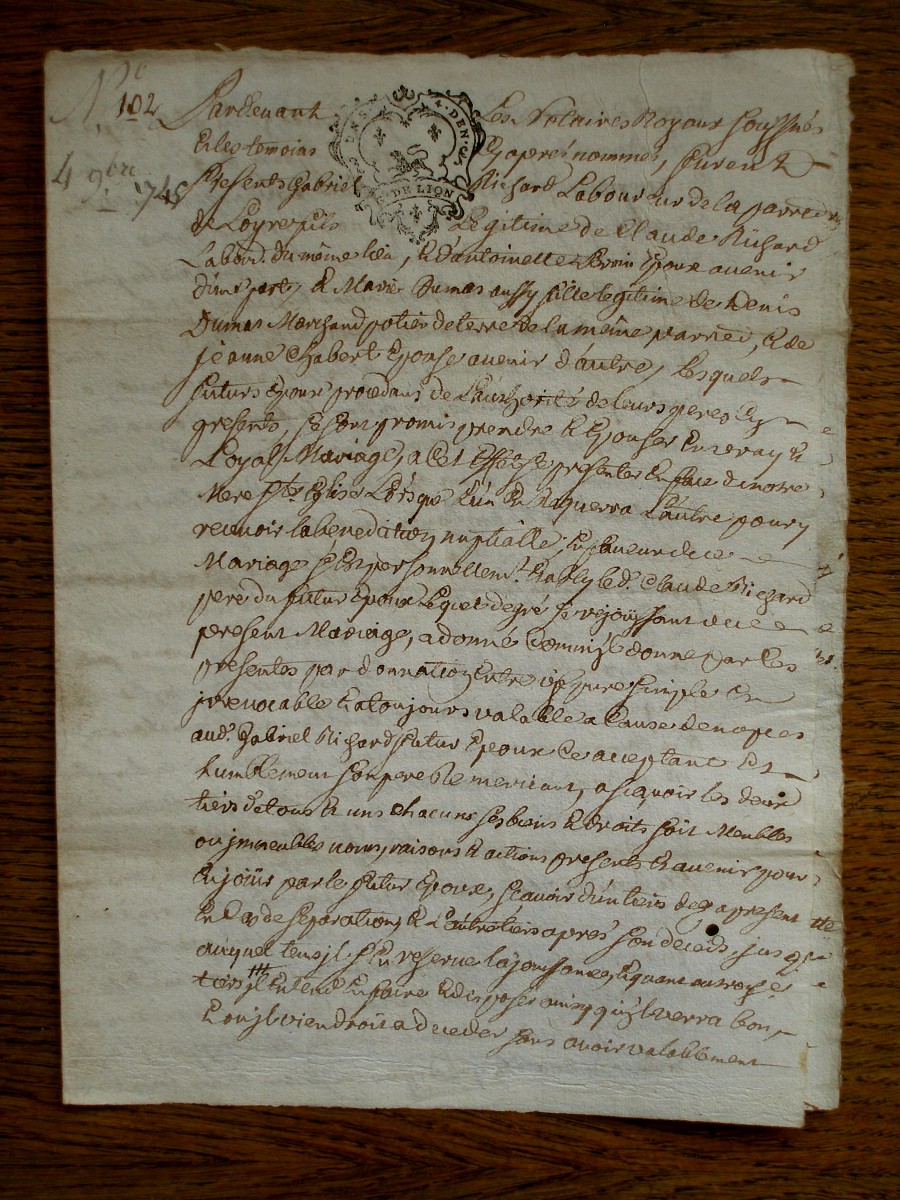 Nº 102
4 9bre 1748
Pardevant Les Notaires Royaux soussnés
Et les temoins Cy aprés nommés, furent
Presents Gabriel Richard Laboureur de la parre
de Loyre fils Legitime de Claude Richard
Labourd. du même lieu, & d'antoinette Époux avenir
d'une part, & Marie Dumas aussy fille legitime de Denis
Dumas Marchand potier de terre de la même parre, & de
jeanne Chabert Epouse avenir d'autre, Lesquels
futurs Epoux procedans de L'authorité de leurs peres Cy
presents, se sont promis prendre & Epouser En vray &
Loyal Mariage, a Cet Effet se presenter En face de notre
Mere Ste Eglise Lorsque L'un En Requerra L'autre pour y
recevoir la benediction nuptialle, En faveur du ce
Mariage s'Est personnellemt. Etably led. Claude Richard
pere du futur Epoux Lequel de gré se rejoüissant du ce
present Mariage, a donné Comme il donne par les
presentes par donnation Entre vifs pure simple Et
jrrevocable Et a toujours valable a Cause de nopces
aud. Gabriel Richard futur Epoux Ce acceptant Et
humblement son pere Le merciant, a sçavoir les deux
tiers de tous & uns chacuns ses biens & droits soit Meubles
ou jmmeubles noms, raisons & actions presents & avenir pour
En joüir par le futur Epoux, sçavoir d'un tiers dez a present
En Cas de separation, & L'autre tiers aprés son decéds, jusques
auquel tems jl s'En reserve la joüissance, Et quant au troisie.
tiers jl Entend En faire & disposer ainsy qu'il verra bon,
Et ou jl viendroit a deceder sans avoir valablement
4. DEN.
G. DE LION